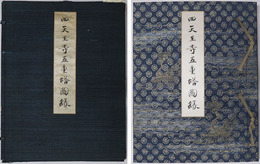 四天王寺五重塔圖録
四天王寺五重塔圖録